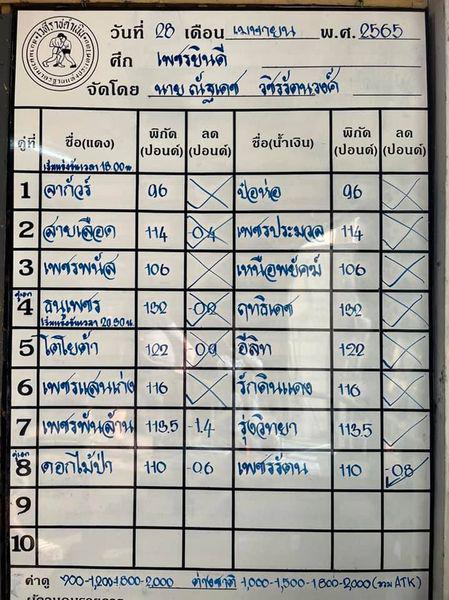 วันที่ 28 เดือน เมษายน พ.ศ. 2565
ศึก เพชรยินดี
จัดโดย นาย ณัฐเดช วชิรรัตนวงศ์
คู่ที่ ชื่อ(แดง) พิกัด (ปอนด์) ลด (ปอนด์) ชื่อ(น้ำเงิน) พิกัด (ปอนด์) ลด (ปอนด์)
เริ่มแข่งขันเวลา 18.00 น
1 ลาก้วร์ 96 ป๋อห่อ 96
2 สายเลือด 114 -0.4 เพชรประมวล 114
3 เพชรพนัส 106 เหนือพยัคฆ์ 106
คู่เอก 4 ธนูเพชร 132 -0.2 ฤทธิเดช 132
เริ่มแข่งขันเวลา 20.30 น
5 โตโยต้า 122 -0.9 อีลิท 122
6 เพชรแสนเก่ง 116 รักดินแดง 116
7 เพชรพันล้าน 113.5 -1.4 รุ่งวิทยา 113.5
คู่เอก 8 ดอกไม้ป่า 110 -0.6 เพชรรัตน 110 -0.8
9
10
ค่าดู 900-1,200-1,500-2,000 ต่างชาติ 1,000-1,500-1,800-2,000 (รวม ATK)